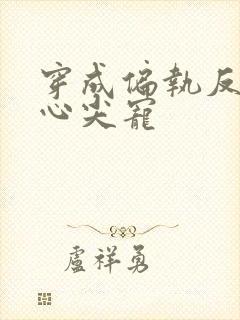 穿成偏執反
心尖寵
盧祥勇